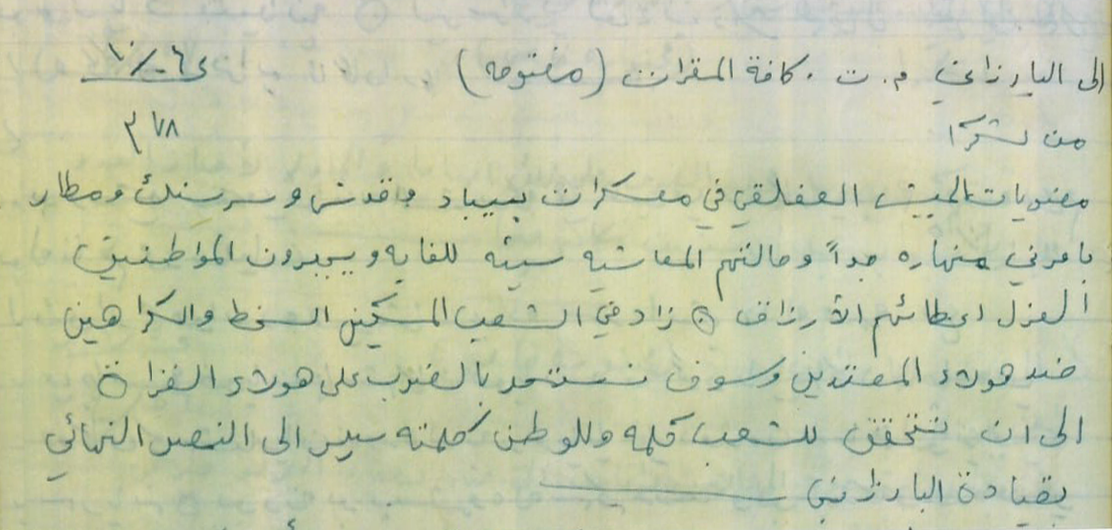 الى البارزاني م.ت. كافة المقرات (مفتوحه) ١٠/٦
من شكرا ٣٧٨
معنويات الجيش العفلقي في معسكرات بيباد وقدش و سرسنك ومطار
بامرني منهاره جداً وحالتهم المعاشيه سيئه للغايه ويجبرون المواطنين
العزل اعطائهم الأرزاق زاد في الشعب المسكين السخط والكراهين
ضد هولاء المعتدين وسوف نستمد بالضرب على هولاء الغزاة
الى ان تتحقق للشعب كلمه وللوطن كلمته سيير الى النصر النهائي
بقيادة البارزاني